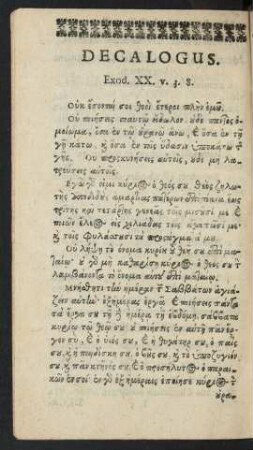 DECALOGUS.
Exod. XX. v. 3. 8.
Οὐκ ἔσονταί σοι θεοὶ ἕτεροι πλὴν ἐμοῦ.
Οὐ ποιήσεις σεαυτῷ εἴδωλον, οὐδὲ παντὸς ὁ-
μοίωμα, ὅσα ἐν τῷ οὐρανῷ ἄνω, καὶ ὅσα ἐν τῇ
γῇ κάτω, καὶ ὅσα ἐν τοῖς ὕδασιν ὑποκάτω τῆς
γῆς. Οὐ προσκυνήσεις αὐτοῖς, οὐδὲ μὴ λα-
τρεύσεις αὐτοῖς.
Ἐγὼ γάρ εἰμι κύριος ὁ θεός σου, θεὸς ζηλω-
τὴς ἀποδιδοὺς ἁμαρτίας πατέρων ἐπὶ τέκνα ἕως
τρίτης καὶ τετάρτης γενεᾶς τοῖς μισοῦσί με καὶ
ποιῶν ἔλεος εἰς χιλιάδας τοῖς ἀγαπῶσί με,
καὶ τοῖς φυλάσσουσι τὰ προστάγματά μου.
Οὐ λήψῃ τὸ ὄνομα κυρίου τοῦ θεοῦ σου ἐπὶ μα-
ταίῳ· οὐ γὰρ μὴ καθαρίσῃ κύριος ὁ θεός σου τὸν
λαμβάνοντα τὸ ὄνομα αὐτοῦ ἐπὶ ματαίῳ.
Μνήσθητι τὴν ἡμέραν τῶν Σαββάτων ἁγιά-
ζειν αὐτήν· ἓξ ἡμέρας ἐργᾷ καὶ ποιήσεις πάντα
τὰ ἔργα σου τῇ δὲ ἡμέρᾳ τῇ ἑβδόμῃ, σάββατα
κυρίῳ τῷ θεῷ σου οὐ ποιήσεις ἐν αὐτῇ πᾶν ἔρ-
γον σὺ, καὶ ὁ υἱός σου, καὶ ἡ θυγάτηρ σου, ὁ παῖς
σου, καὶ ἡ παιδίσκη σου, ὁ βοῦς σου, καὶ τὸ ὑποζύγιόν
σου, καὶ πᾶν κτῆνός σου, καὶ ὁ προσήλυτος ὁ παροι-
κῶν ἐν σοί· ἐν γὰρ ἓξ ἡμέραις ἐποίησε κύριος τὸν
οὐρα-